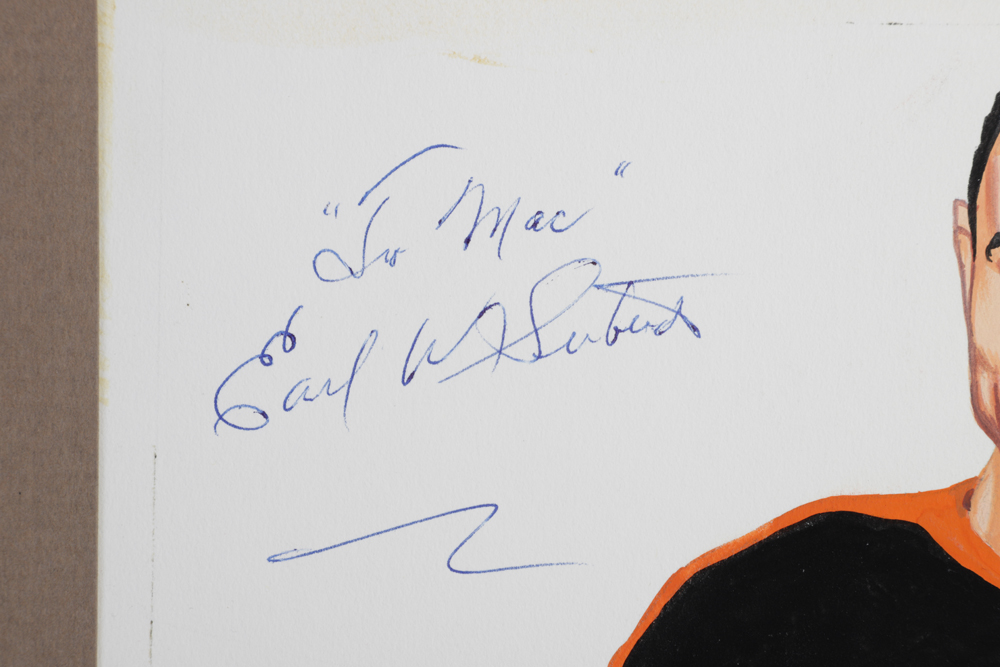 "To Mac"
Earl W Seibert